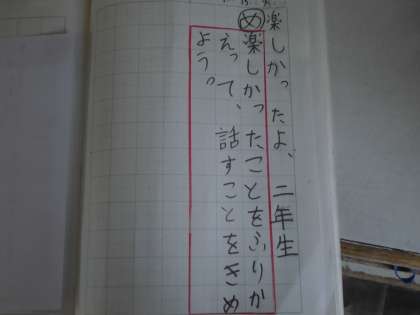 楽しかったよ、二年生
め 楽しかったことをふりか
えって、話すことをきめ
よう。